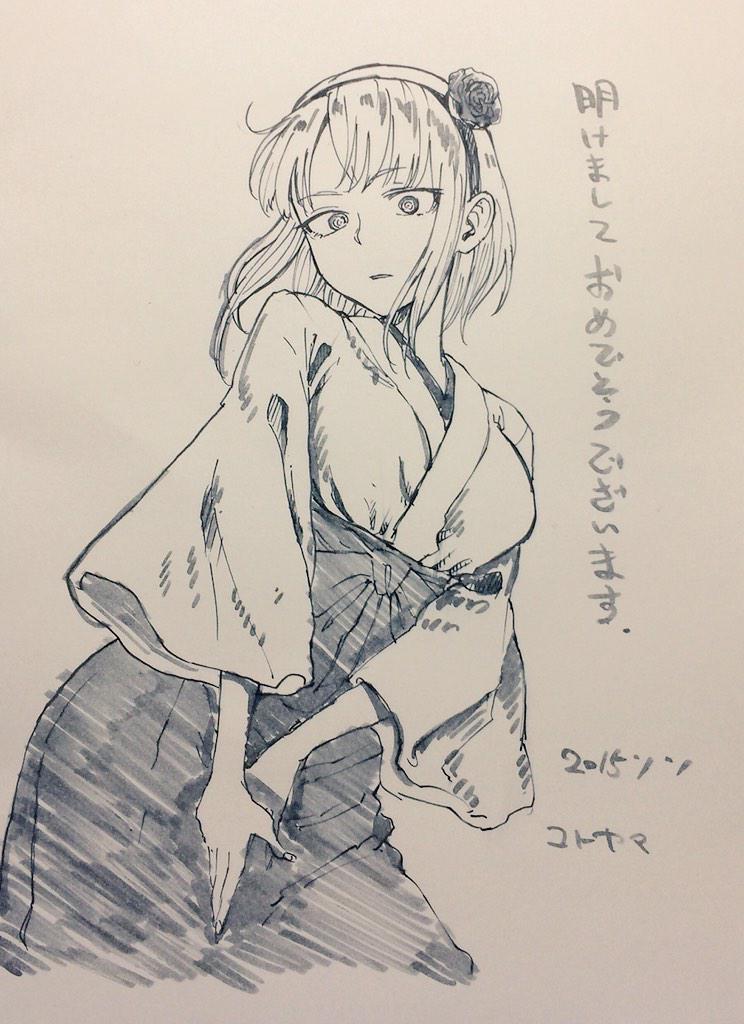 明けましておめでとうございます.
2015ソソ
コトヤマ